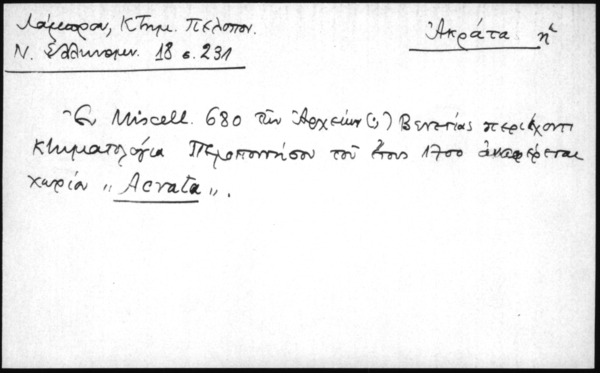 Λάμπρου, Κτημ. Πελοπον.
Ν. Ἑλληνομν. 18 σ. 231
Ἀκράτα ἡ
Ἐν Miscell. 680 τῶν Ἀρχείων (;) Βενετίας περιέχοντι
κτηματολόγια Πελοποννήσου τοῦ ἔτους 1700 ἀναφέρεται
χωρίον „Acrata„.